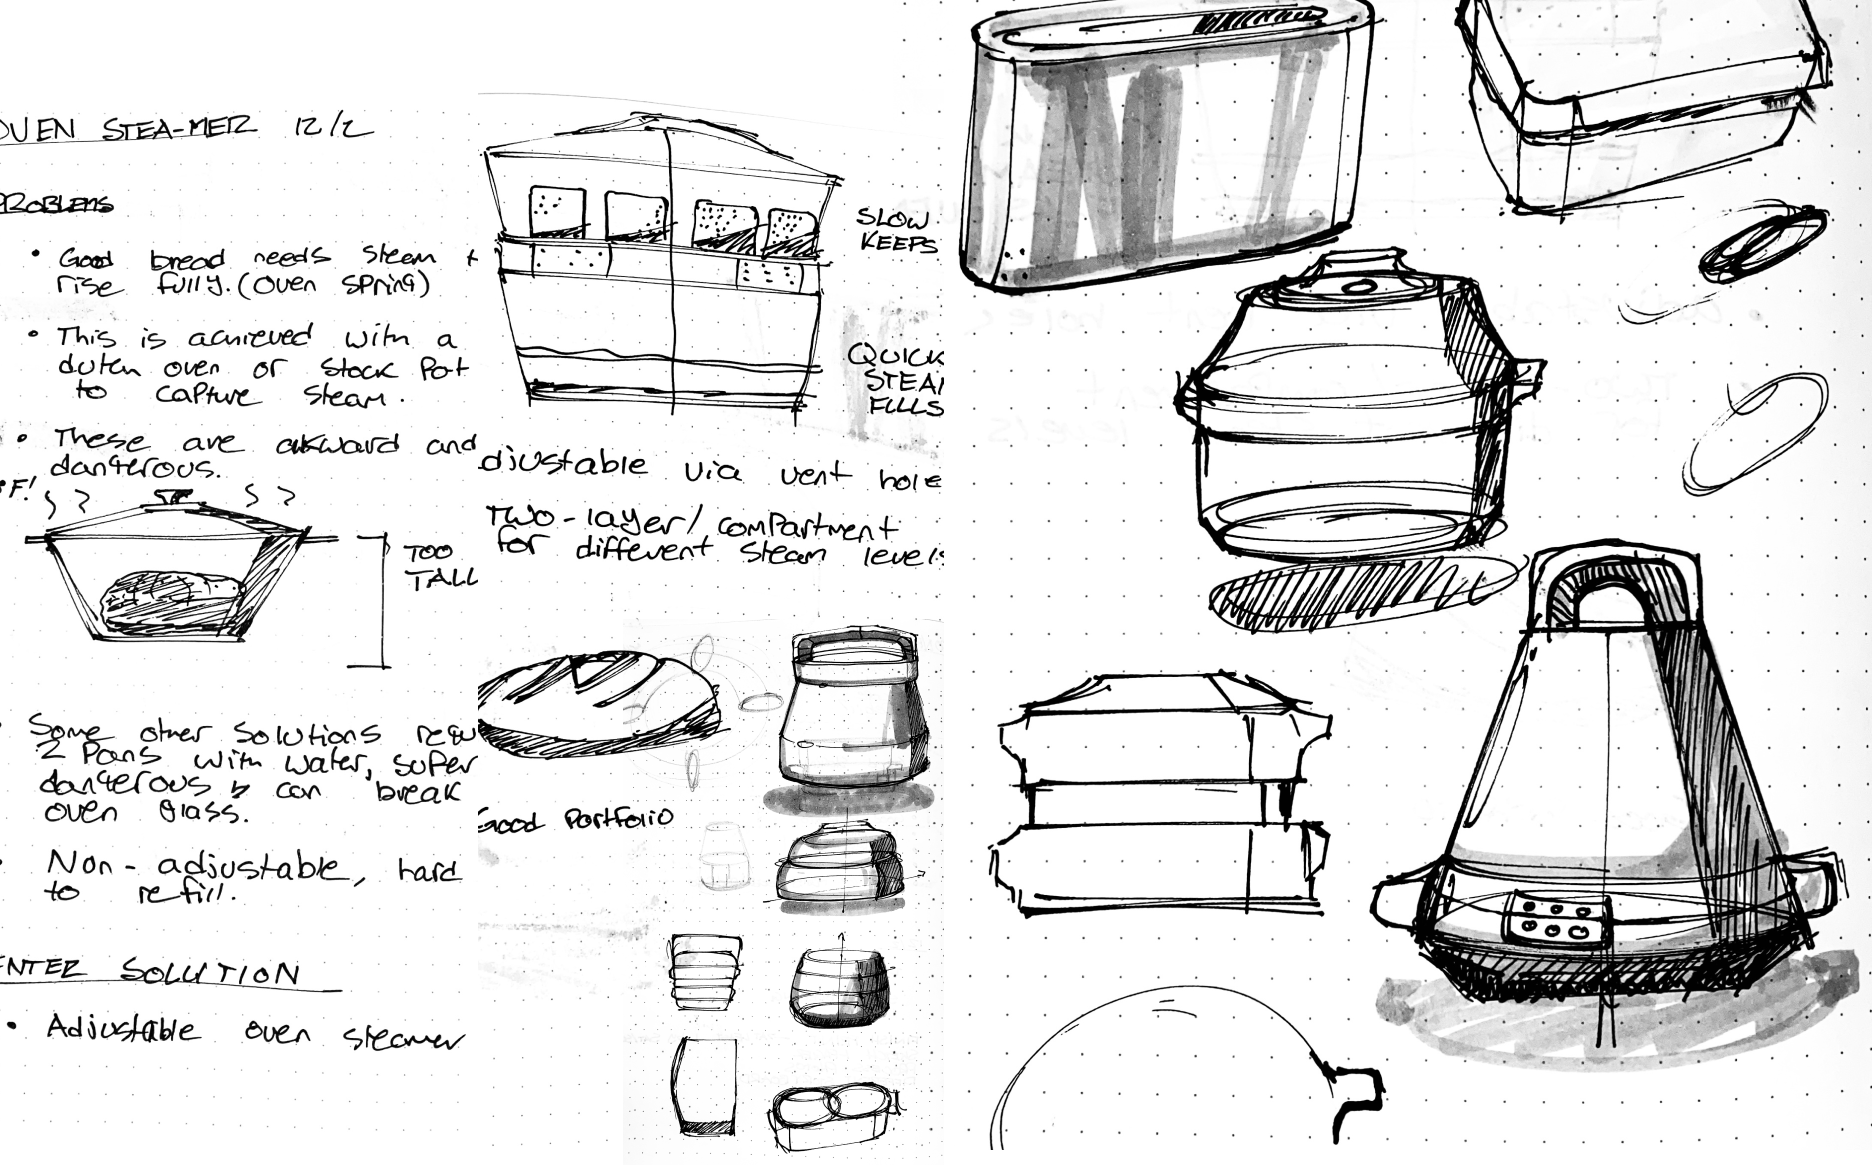 OVEN STEA-MER 12/2
PROBLEMS
• Good bread needs steam t
rise fully. (oven spring)
• This is achieved with a
duten oven or stock Pot
to capture steam.
• These are awkward and
dangerous.
°F!
TOO
TALL
Some other solutions requ
2 Pans with water, super
dangerous & can break
oven glass.
Non-adjustable, hard
to refill.
ENTER SOLUTION
• Adjustable oven steamer
SLOW
KEEPS
QUICK
STEAM
FILLS
djustable via vent hole
TWO-layer/compartment
for different steam levels
Good Portfolio